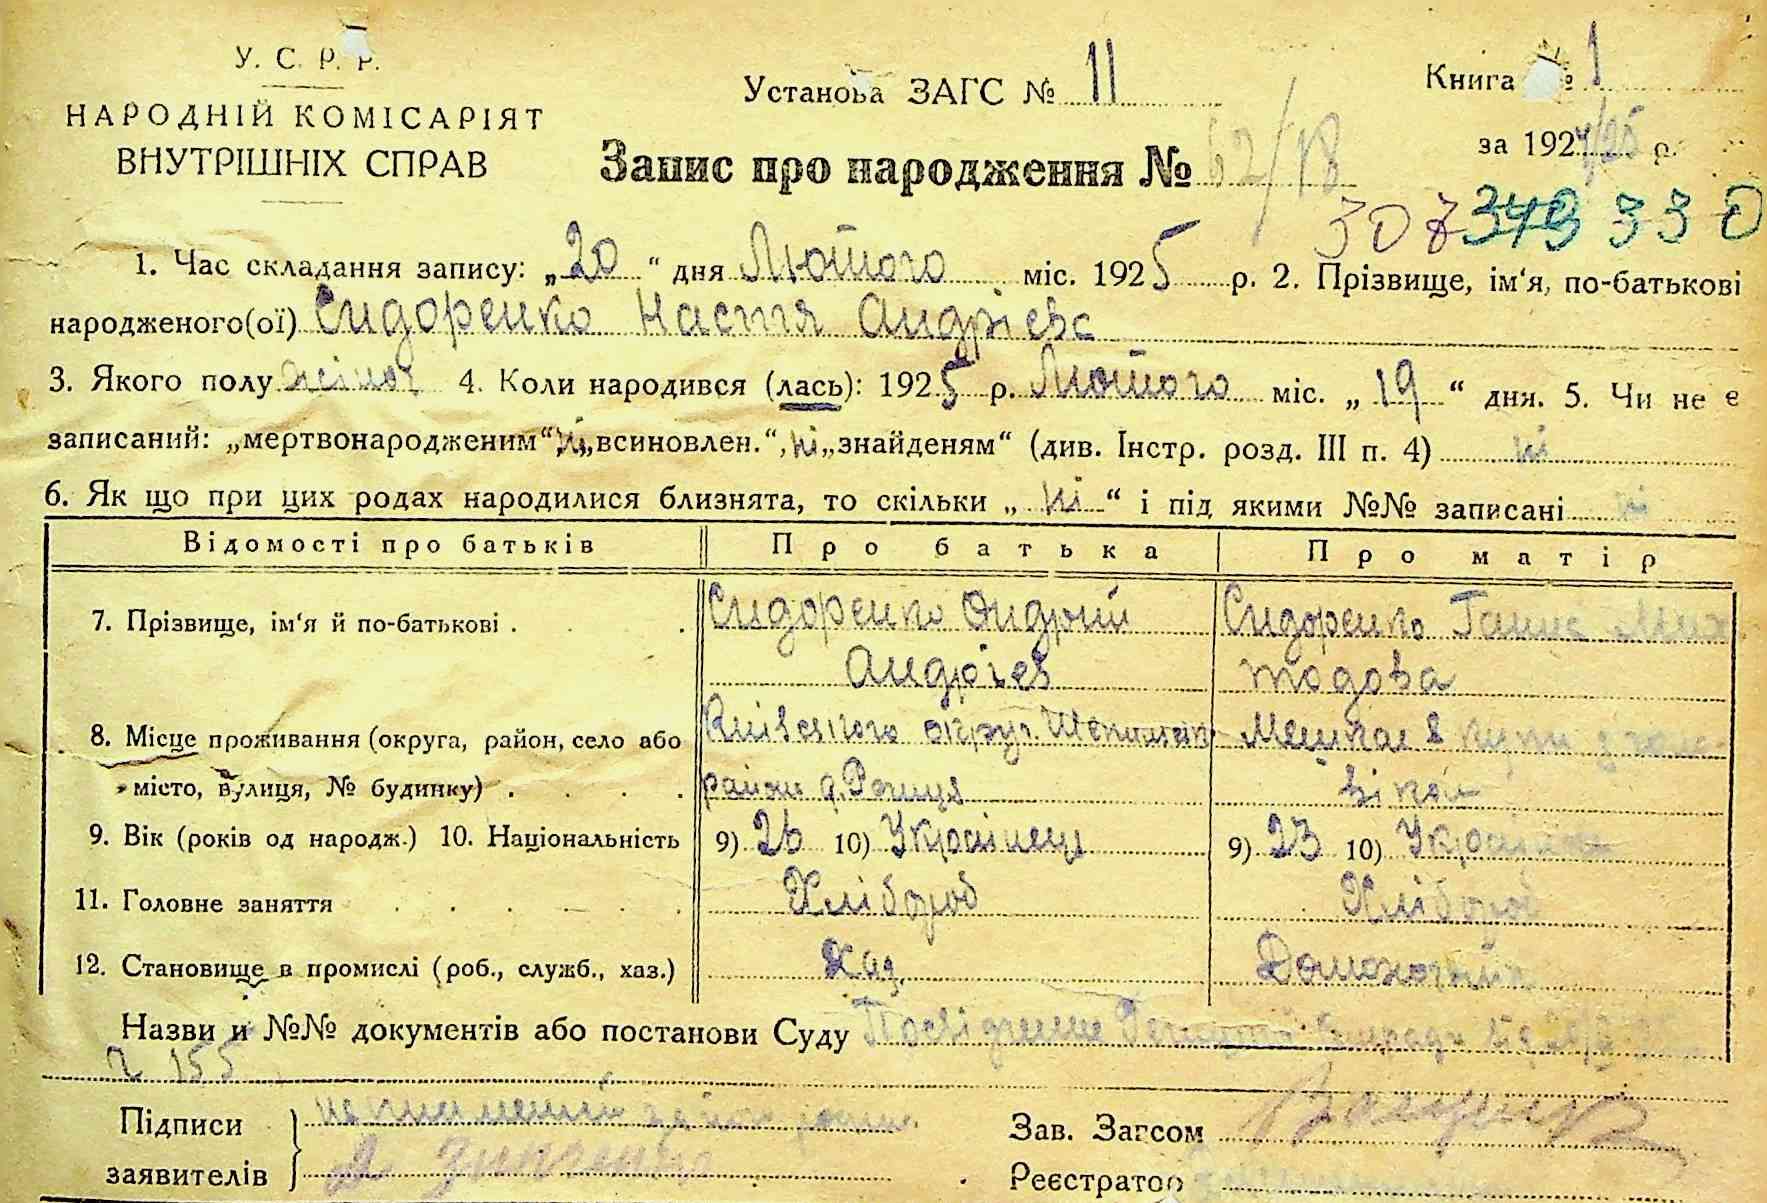 У. С. Р. Р.
НАРОДНІЙ КОМІСАРІЯТ
ВНУТРІШНІХ СПРАВ
Установа ЗАГС № 11
Книга № 1
за 1924/25 р.
Запис про народження № 62/18
307 349 330
1. Час складання запису: „20“ дня Лютого міс. 1925 р. 2. Прізвище, ім‘я, по-батькові
народженого(ої) Сидоренко Настя Андрієва
3. Якого полу жіноч 4. Коли народився (лась): 1925 р. Лютого міс. „19“ дня. 5. Чи не є
записаний: „мертвонародженим“ ні, „всиновлен.“, ні „знайденям“ (див. Інстр. розд. III п. 4) ні
6. Як що при цих родах народилися близнята, то скільки „ні“ і під якими №№ записані ні
Відомості про батьків Про батька Про матір
7. Прізвище, ім‘я й по-батькові . Сидоренко Андрій Сидоренко Ганна
Андрієв
8. Місце проживання (округа, район, село або Київського округ. Мешкає в купі з чоло-
місто, вулиця, № будинку) . району віком
9. Вік (років од народж.) 10. Національність 9) 26 10) Українець 9) 23 10) Українка
11. Головне заняття Хлібороб Хлібороб
12. Становище в промислі (роб., служб., хаз.) Хаз.
Назви и №№ документів або постанови Суду Посвідчення
155
Підписи неписьменний
заявителів
Зав. Загсом
Реєстратор